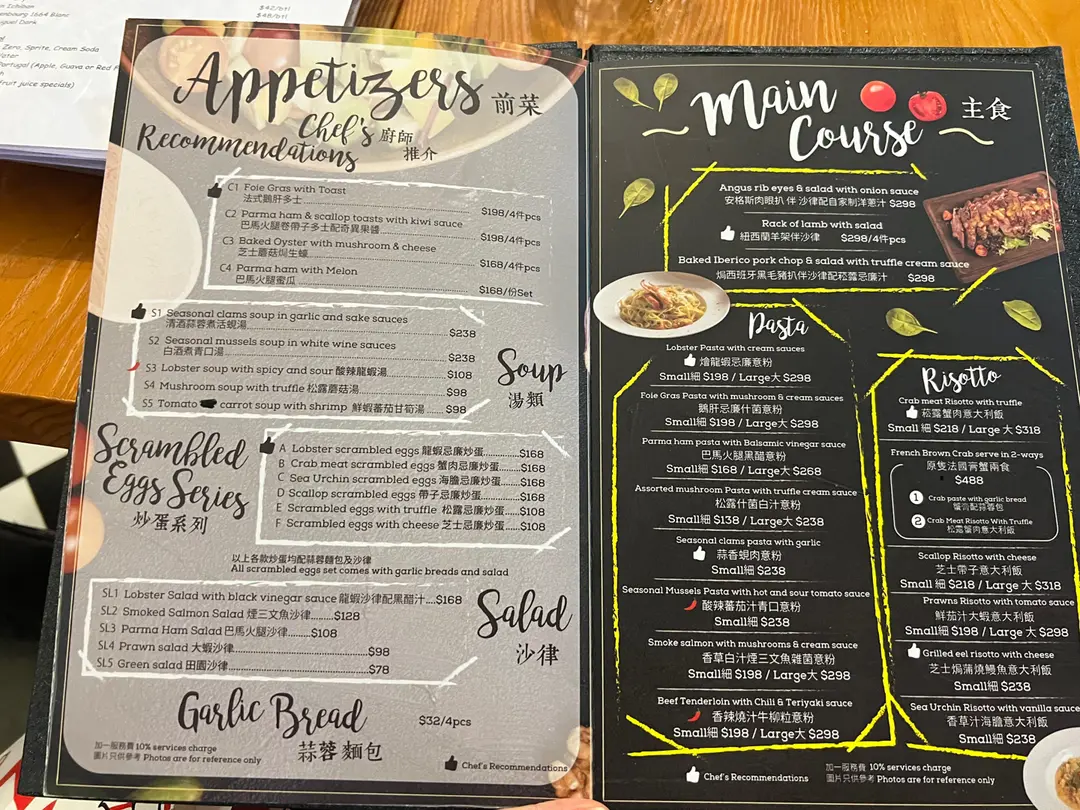 $42/btl
$48/btl
Zero, Sprite, Cream Soda
Portugal (Apple, Guava or Red
fruit juice specials)
Appetizers 前菜
Chef's 廚師
Recommendations 推介
C1 Foie Gras with Toast
法式鵝肝多士
$198/4件pcs
C2 Parma ham & scallop toasts with kiwi sauce
巴馬火腿卷帶子多士配奇異果醬
$198/4件pcs
C3 Baked Oyster with mushroom & cheese
芝士蘑菇焗生蠔
$168/4件pcs
C4 Parma ham with Melon
巴馬火腿蜜瓜
$168/份Set
S1 Seasonal clams soup in garlic and sake sauces
清酒蒜蓉煮活蜆湯
$238
S2 Seasonal mussels soup in white wine sauces
白酒煮青口湯
$238
S3 Lobster soup with spicy and sour 酸辣龍蝦湯 $108
S4 Mushroom soup with truffle 松露蘑菇湯 $98
S5 Tomato carrot soup with shrimp 鮮蝦蕃茄甘筍湯 $98
Soup
湯類
Scrambled
Eggs Series
炒蛋系列
A Lobster scrambled eggs 龍蝦忌廉炒蛋 $168
B Crab meat scrambled eggs 蟹肉忌廉炒蛋 $168
C Sea Urchin scrambled eggs 海膽忌廉炒蛋 $168
D Scallop scrambled eggs 帶子忌廉炒蛋 $168
E Scrambled eggs with truffle 松露忌廉炒蛋 $108
F Scrambled eggs with cheese 芝士忌廉炒蛋 $108
以上各款炒蛋均配蒜蓉麵包及沙律
All scrambled eggs set comes with garlic breads and salad
SL1 Lobster Salad with black vinegar sauce 龍蝦沙律配黑醋汁....$168
SL2 Smoked Salmon Salad 煙三文魚沙律.........$128
SL3 Parma Ham Salad 巴馬火腿沙律.........$108
SL4 Prawn salad 大蝦沙律 $98
SL5 Green salad 田園沙律 $78
Salad
沙律
Garlic Bread $32/4pcs
蒜蓉 麵包
加一服務費 10% services charge
圖片只供參考 Photos are for reference only
Chef's Recommendations
Main
Course 主食
Angus rib eyes & salad with onion sauce
安格斯肉眼扒 伴 沙律配自家制洋蔥汁 $298
Rack of lamb with salad
紐西蘭羊架伴沙律 $298/4件pcs
Baked Iberico pork chop & salad with truffle cream sauce
焗西班牙黑毛豬扒伴沙律配菘露忌廉汁 $298
Pasta
Lobster Pasta with cream sauces
燴龍蝦忌廉意粉
Small細 $198 / Large大 $298
Foie Gras Pasta with mushroom & cream sauces
鵝肝忌廉什菌意粉
Small細 $198 / Large大 $298
Parma ham pasta with Balsamic vinegar sauce
巴馬火腿黑醋意粉
Small細 $168 / Large大 $268
Assorted mushroom Pasta with truffle cream sauce
松露什菌白汁意粉
Small細 $138 / Large大 $238
Seasonal clams pasta with garlic
蒜香蜆肉意粉
Small細 $238
Seasonal Mussels Pasta with hot and sour tomato sauce
酸辣蕃茄汁青口意粉
Small細 $238
Smoke salmon with mushrooms & cream sauce
香草白汁煙三文魚雜菌意粉
Small細 $198 / Large大 $298
Beef Tenderloin with Chili & Teriyaki sauce
香辣燒汁牛柳粒意粉
Small細 $198 / Large大 $298
Risotto
Crab meat Risotto with truffle
菘露蟹肉意大利飯
Small 細 $218 / Large 大 $318
French Brown Crab serve in 2-ways
原隻法國膏蟹兩食
$488
1 Crab paste with garlic bread
蟹膏配蒜蓉包
2 Crab Meat Risotto With Truffle
松露蟹肉意大利飯
Scallop Risotto with cheese
芝士帶子意大利飯
Small 細 $218 / Large 大 $318
Prawns Risotto with tomato sauce
鮮茄汁大蝦意大利飯
Small細 $198 / Large 大 $298
Grilled eel risotto with cheese
芝士焗蒲燒鰻魚意大利飯
Small細 $238
Sea Urchin Risotto with vanilla sauce
香草汁海膽意大利飯
Small細 $238
Chef's Recommendations
加一服務費 10% services charge
圖片只供參考 Photos are for reference only